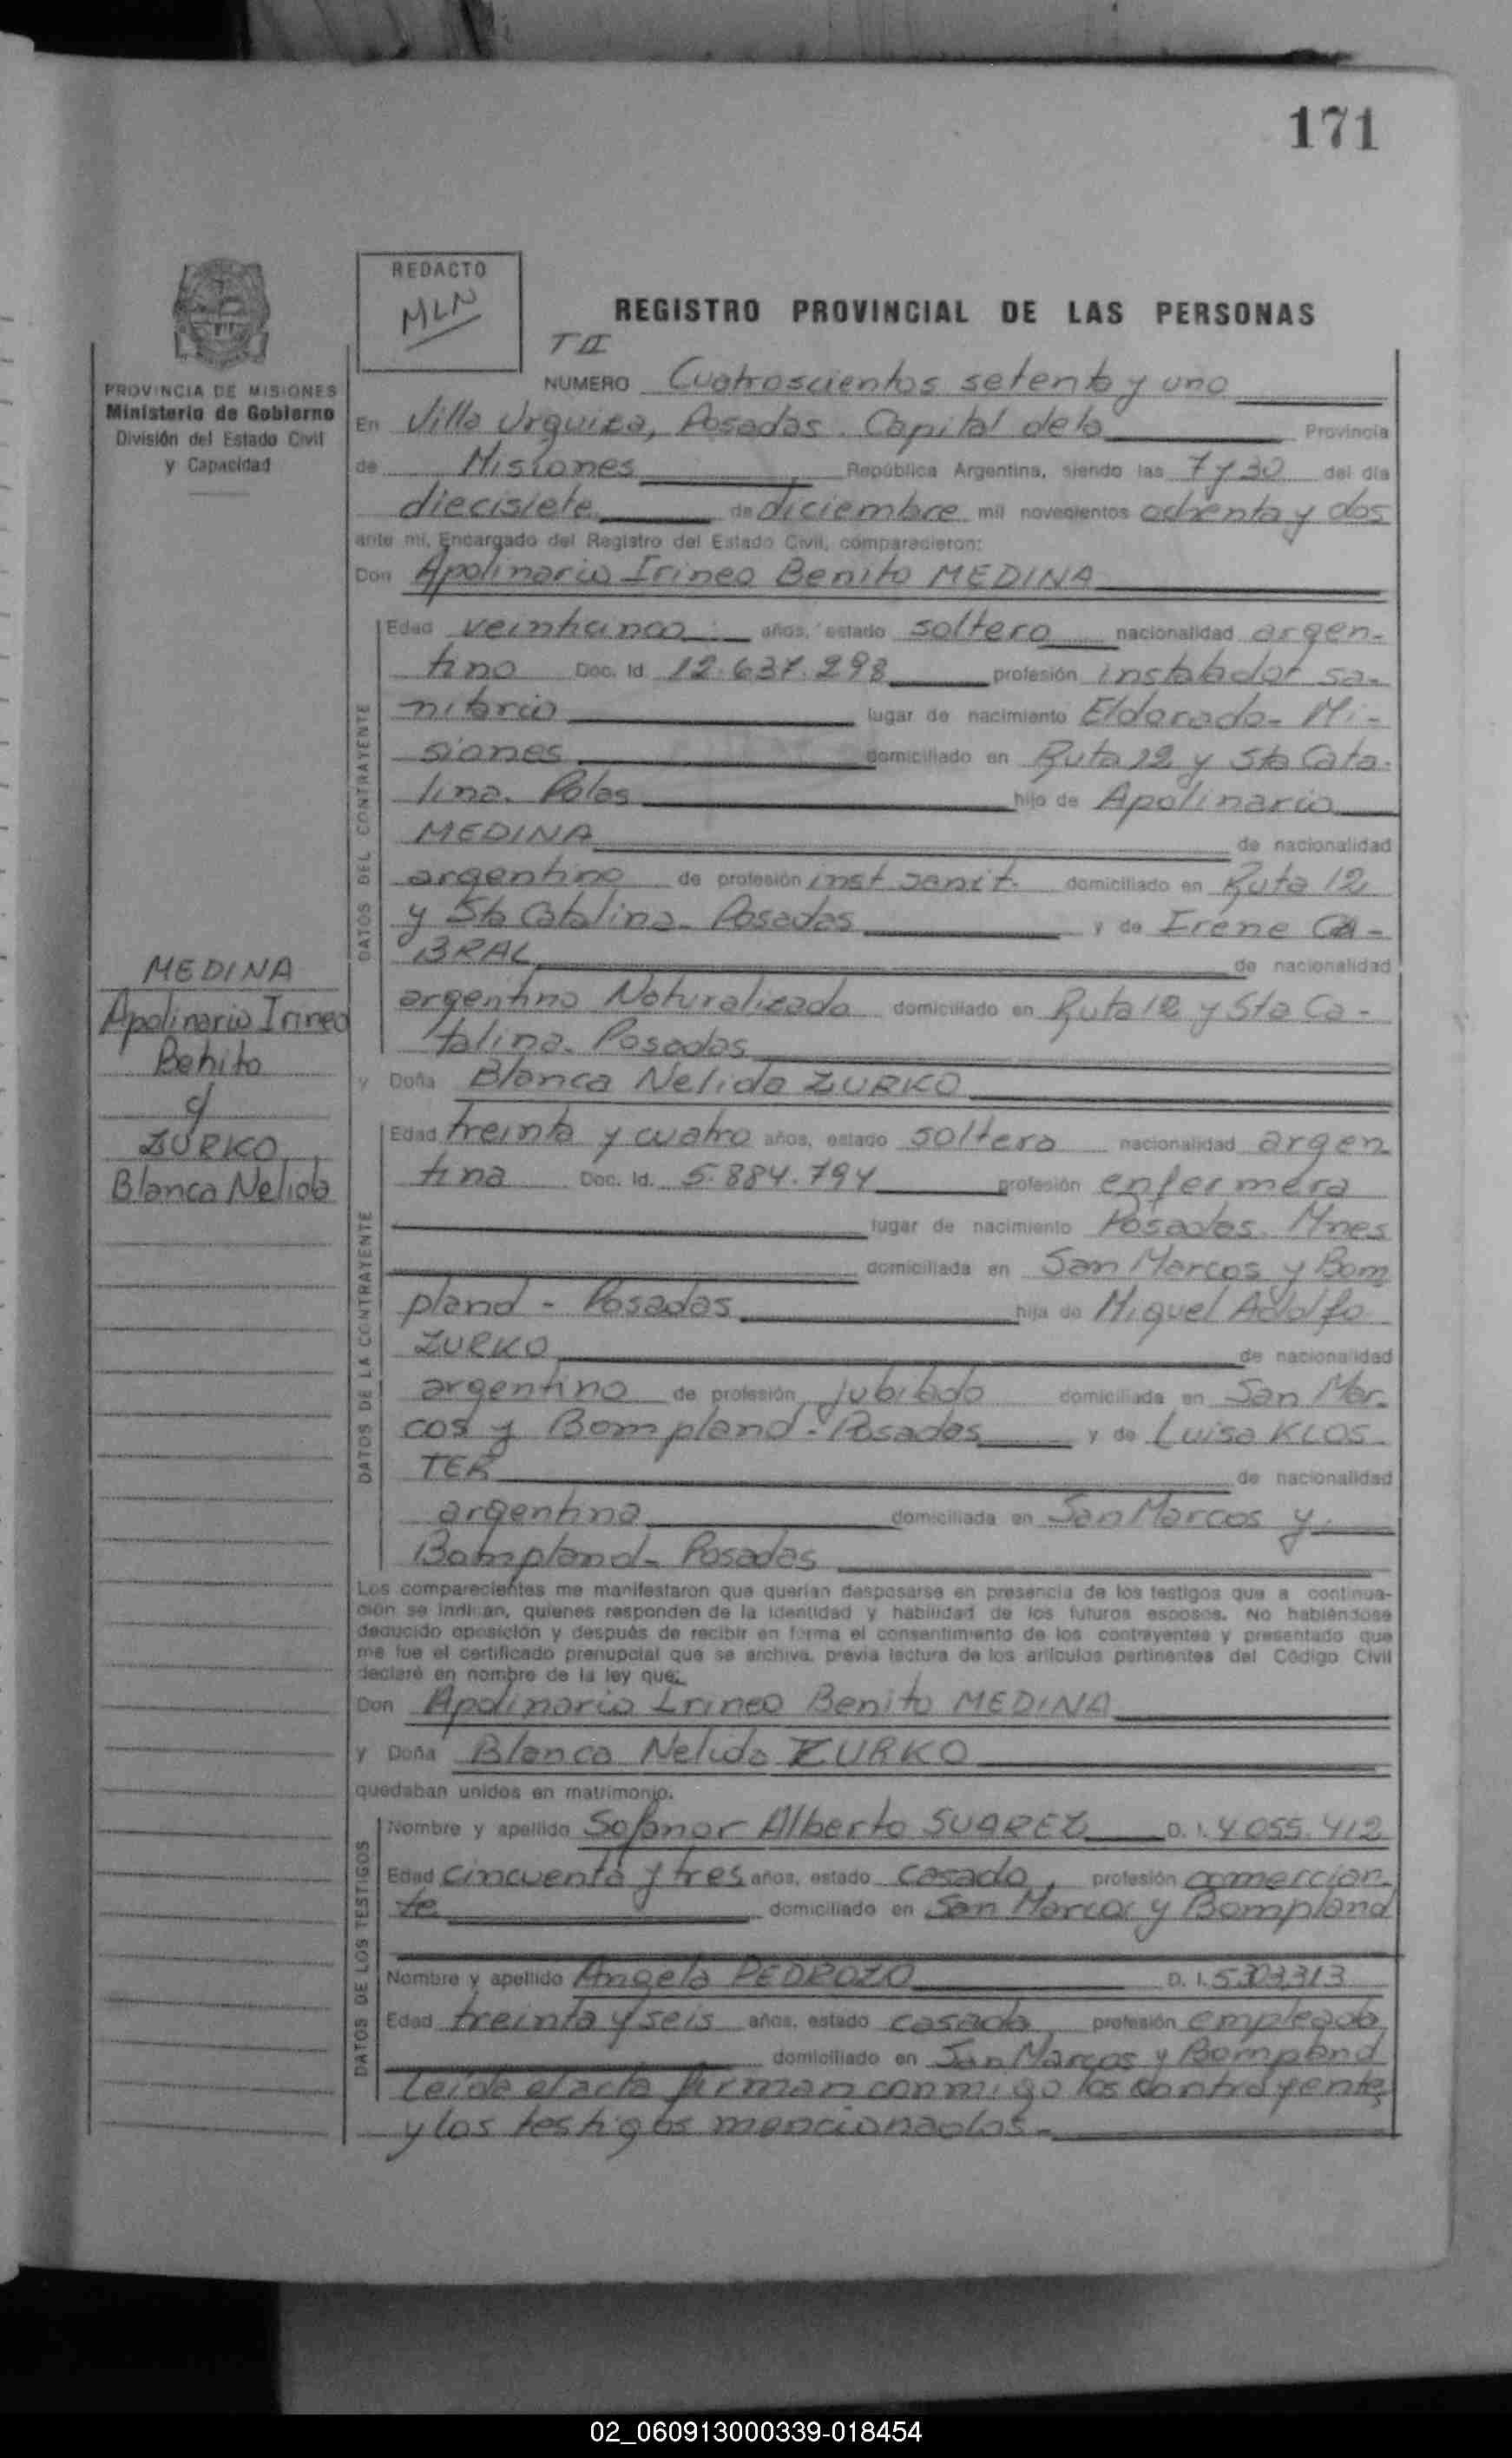 171
REDACTO
MLN
REGISTRO PROVINCIAL DE LAS PERSONAS
T II
PROVINCIA DE MISIONES
Ministerio de Gobierno
División del Estado Civil
y Capacidad
NUMERO Cuatroscientos setenta y uno
En Villa Urquiza, Posadas. Capital de la Provincia
de Misiones República Argentina, siendo las 7 y 30 del día
diecisiete de diciembre mil novecientos ochenta y dos
ante mi, Encargado del Registro del Estado Civil, comparecieron:
Don Apolinario Irineo Benito MEDINA
DATOS DEL CONTRAYENTE
Edad veinticinco años, estado soltero nacionalidad argen-
tino Doc. Id. 12.637.298 profesión instalador sa-
nitario lugar de nacimiento Eldorado- Mi-
siones domiciliado en Ruta 12 y Sta Cata-
lina. Pdas hijo de Apolinario
MEDINA de nacionalidad
argentino de profesión inst sanit. domiciliado en Ruta 12
y Sta Catalina- Posadas y de Irene CA-
BRAL de nacionalidad
argentina Naturalizada domiciliado en Ruta 12 y Sta Ca-
talina- Posadas
MEDINA
Apolinario Irineo
Benito
c/
ZURKO
Blanca Nelida
y Doña Blanca Nelida ZURKO
DATOS DE LA CONTRAYENTE
Edad treinta y cuatro años, estado soltera nacionalidad argen
tina Doc. Id. 5.884.794 profesión enfermera
lugar de nacimiento Posadas. Mnes
domiciliada en San Marcos y Bom
pland - Posadas hija de Miguel Adolfo
ZURKO de nacionalidad
argentino de profesión jubilado domiciliada en San Mar-
cos y Bompland - Posadas y de Luisa KLOS
TER de nacionalidad
argentina domiciliada en San Marcos y
Bompland- Posadas
Los comparecientes me manifestaron que querían desposarse en presencia de los testigos que a continua-
ción se indican, quienes responden de la identidad y habilidad de los futuros esposos. No habiéndose
deducido oposición y después de recibir en forma el consentimiento de los contrayentes y presentado que
me fue el certificado prenupcial que se archiva, previa lectura de los artículos pertinentes del Código Civil
declaré en nombre de la ley que:
Don Apolinario Irineo Benito MEDINA
y Doña Blanca Nelida ZURKO
quedaban unidos en matrimonio.
DATOS DE LOS TESTIGOS
Nombre y apellido Sofanor Alberto SUAREZ D. I. 4055.412
Edad cincuenta y tres años, estado casado, profesión comercian-
te domiciliado en San Marcos y Bompland
Nombre y apellido Angela PEDROZO D. I. 5303313
Edad treinta y seis años, estado casada, profesión empleada
domiciliado en San Marcos y Bompland
Leída el acta firman conmigo los contrayentes
y los testigos mencionados.-
02_060913000339-018454